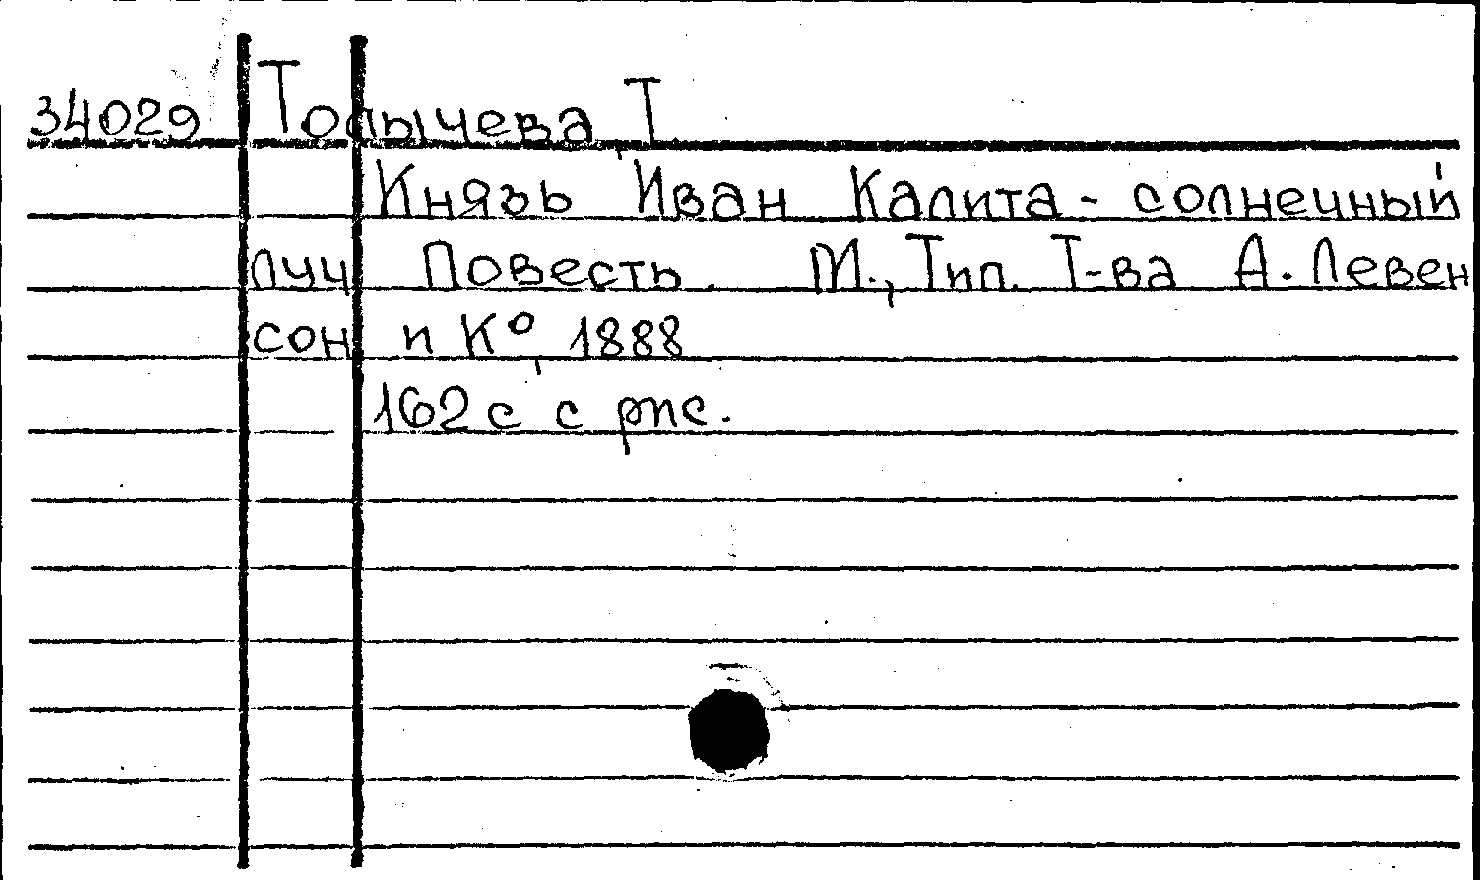 34029 Толычева, Т.
Князь Иван Калита - солнечный
луч Повесть. М., Тип. Т-ва А. Левен
сон и К°, 1888
162 с с рис.